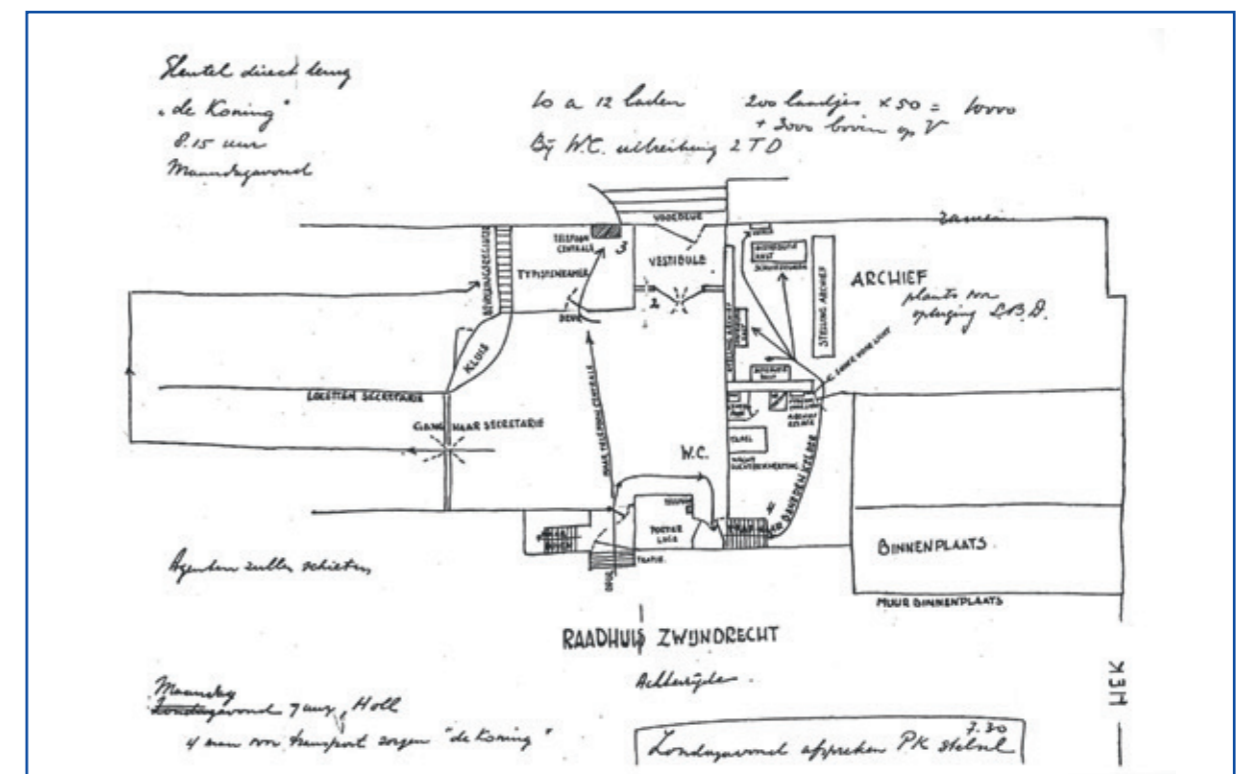 Sleutel direct terug
"de Koning"
8.15 uur
Maandagavond
10 a 12 laden
200 laadjes x 50 = 10000
+ 3000 boven op
Bij W.C. uitbreiding 2 TD
VOORDEUR
ramen
TELEFOON
CENTRALE
3
TYPISTENKAMER
VESTIBULE
2
DEUR
BEVOLKINGSREGISTER
KLUIS
ARCHIEF
plaats voor
opberging L.B.D.
STELLING ARCHIEF
STELLING ARCHIEF
SCHUIFDEUREN
KAST
LOKETTEN SECRETARIE
GANG NAAR SECRETARIE
NAAR TELEFOON CENTRALE
W.C.
TAFEL
NAAR BENEDEN KELDER
PORTIER
LOGE
TRAPJE
DEUR
BINNENPLAATS
MUUR BINNENPLAATS
Agenten zullen schieten
RAADHUIS ZWIJNDRECHT
Achterzijde.
HEK
Maandag
Zondagavond 7 aug, Holl
4 man voor transport zorgen "de Koning"
7.30
Zondagavond afspreken PK stelsel